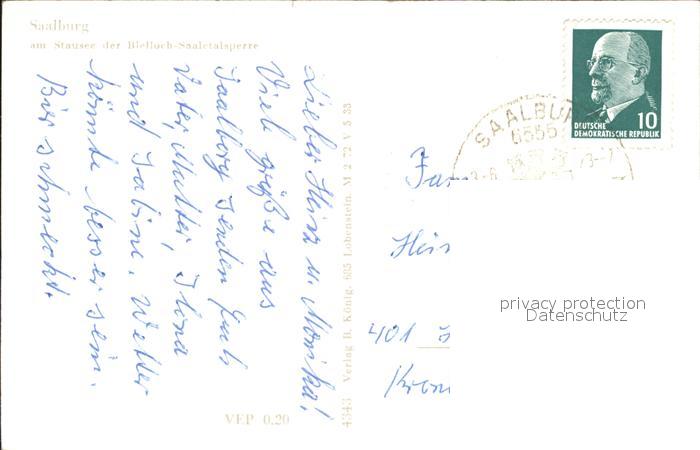 Saalburg
am Stausee der Bleiloch-Saaletalsperre
Lieber Heinz u. Monika!
Viele Grüße aus
Saalburg senden Euch
Vater, Mutter, Ilona
und Sabine. Wetter
könnte besser sein.
Bier schmeckt.
VEP 0.20
4343 Verlag B. König, 685 Lobenstein. M 2 72 V 5 33
DEUTSCHE
DEMOKRATISCHE REPUBLIK
10
SAALBURG
6555
Fam
Hein
401
privacy protection
Datenschutz